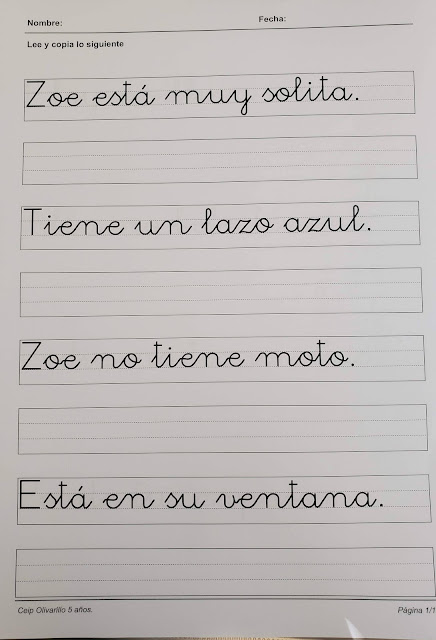 Nombre: Fecha:
Lee y copia lo siguiente
Zoe está muy solita.
Tiene un lazo azul.
Zoe no tiene moto.
Está en su ventana.
Ceip Olivarillo 5 años. Página 1/1